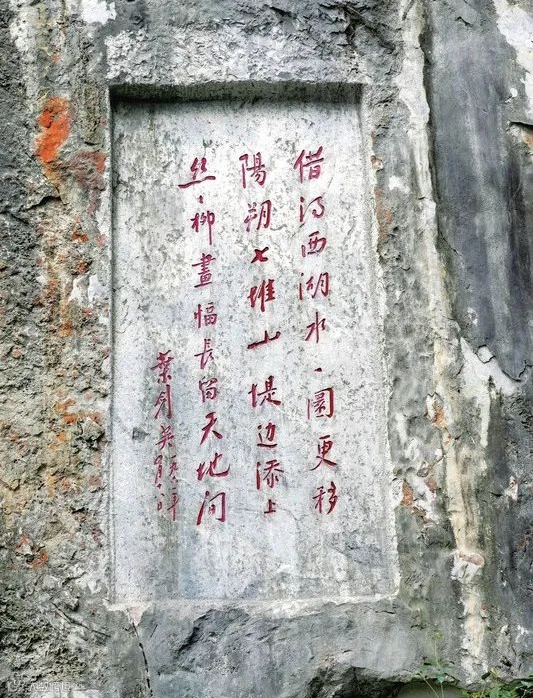 借得西湖水一圜更移
陽朔七堆山堤边添上
丝丝柳畫幅長留天地间
葉剑英